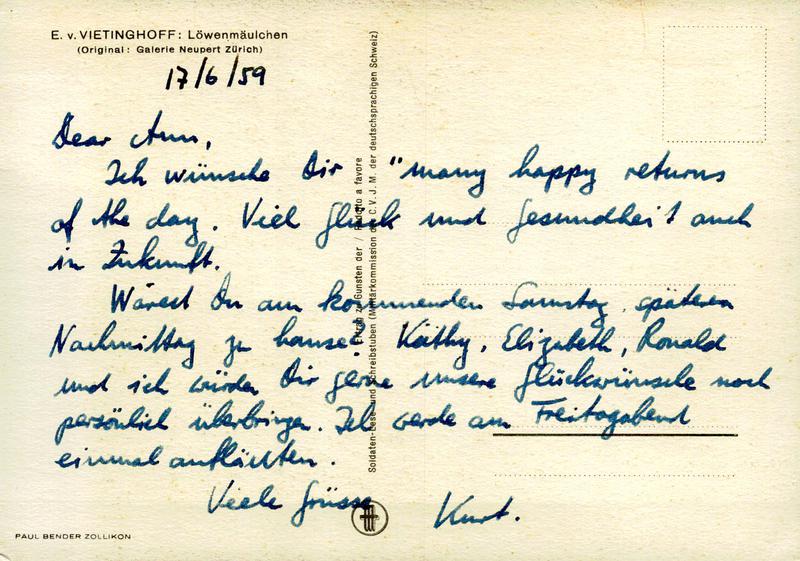 E. v. VIETINGHOFF: Löwenmäulchen
(Original: Galerie Neupert Zürich)
17/6/59
Dear Ann,
Ich wünsche Dir "many happy returns
of the day. Viel Glück und Gesundheit auch
in Zukunft.
Wärest Du am kommenden Samstag späteren
Nachmittag zu hause? Käthy, Elizabeth, Ronald
und ich würden Dir gerne unsere Glückwünsche noch
persönlich überbringen. Ich werde am Freitagabend
einmal anfläuten.
Viele Grüsse
Kurt.
Ertrag zu Gunsten der / Ridotto a favore
Soldaten-Lese- und Schreibstuben (Militärkommission des C.V.J.M. der deutschsprachigen Schweiz)
PAUL BENDER ZOLLIKON